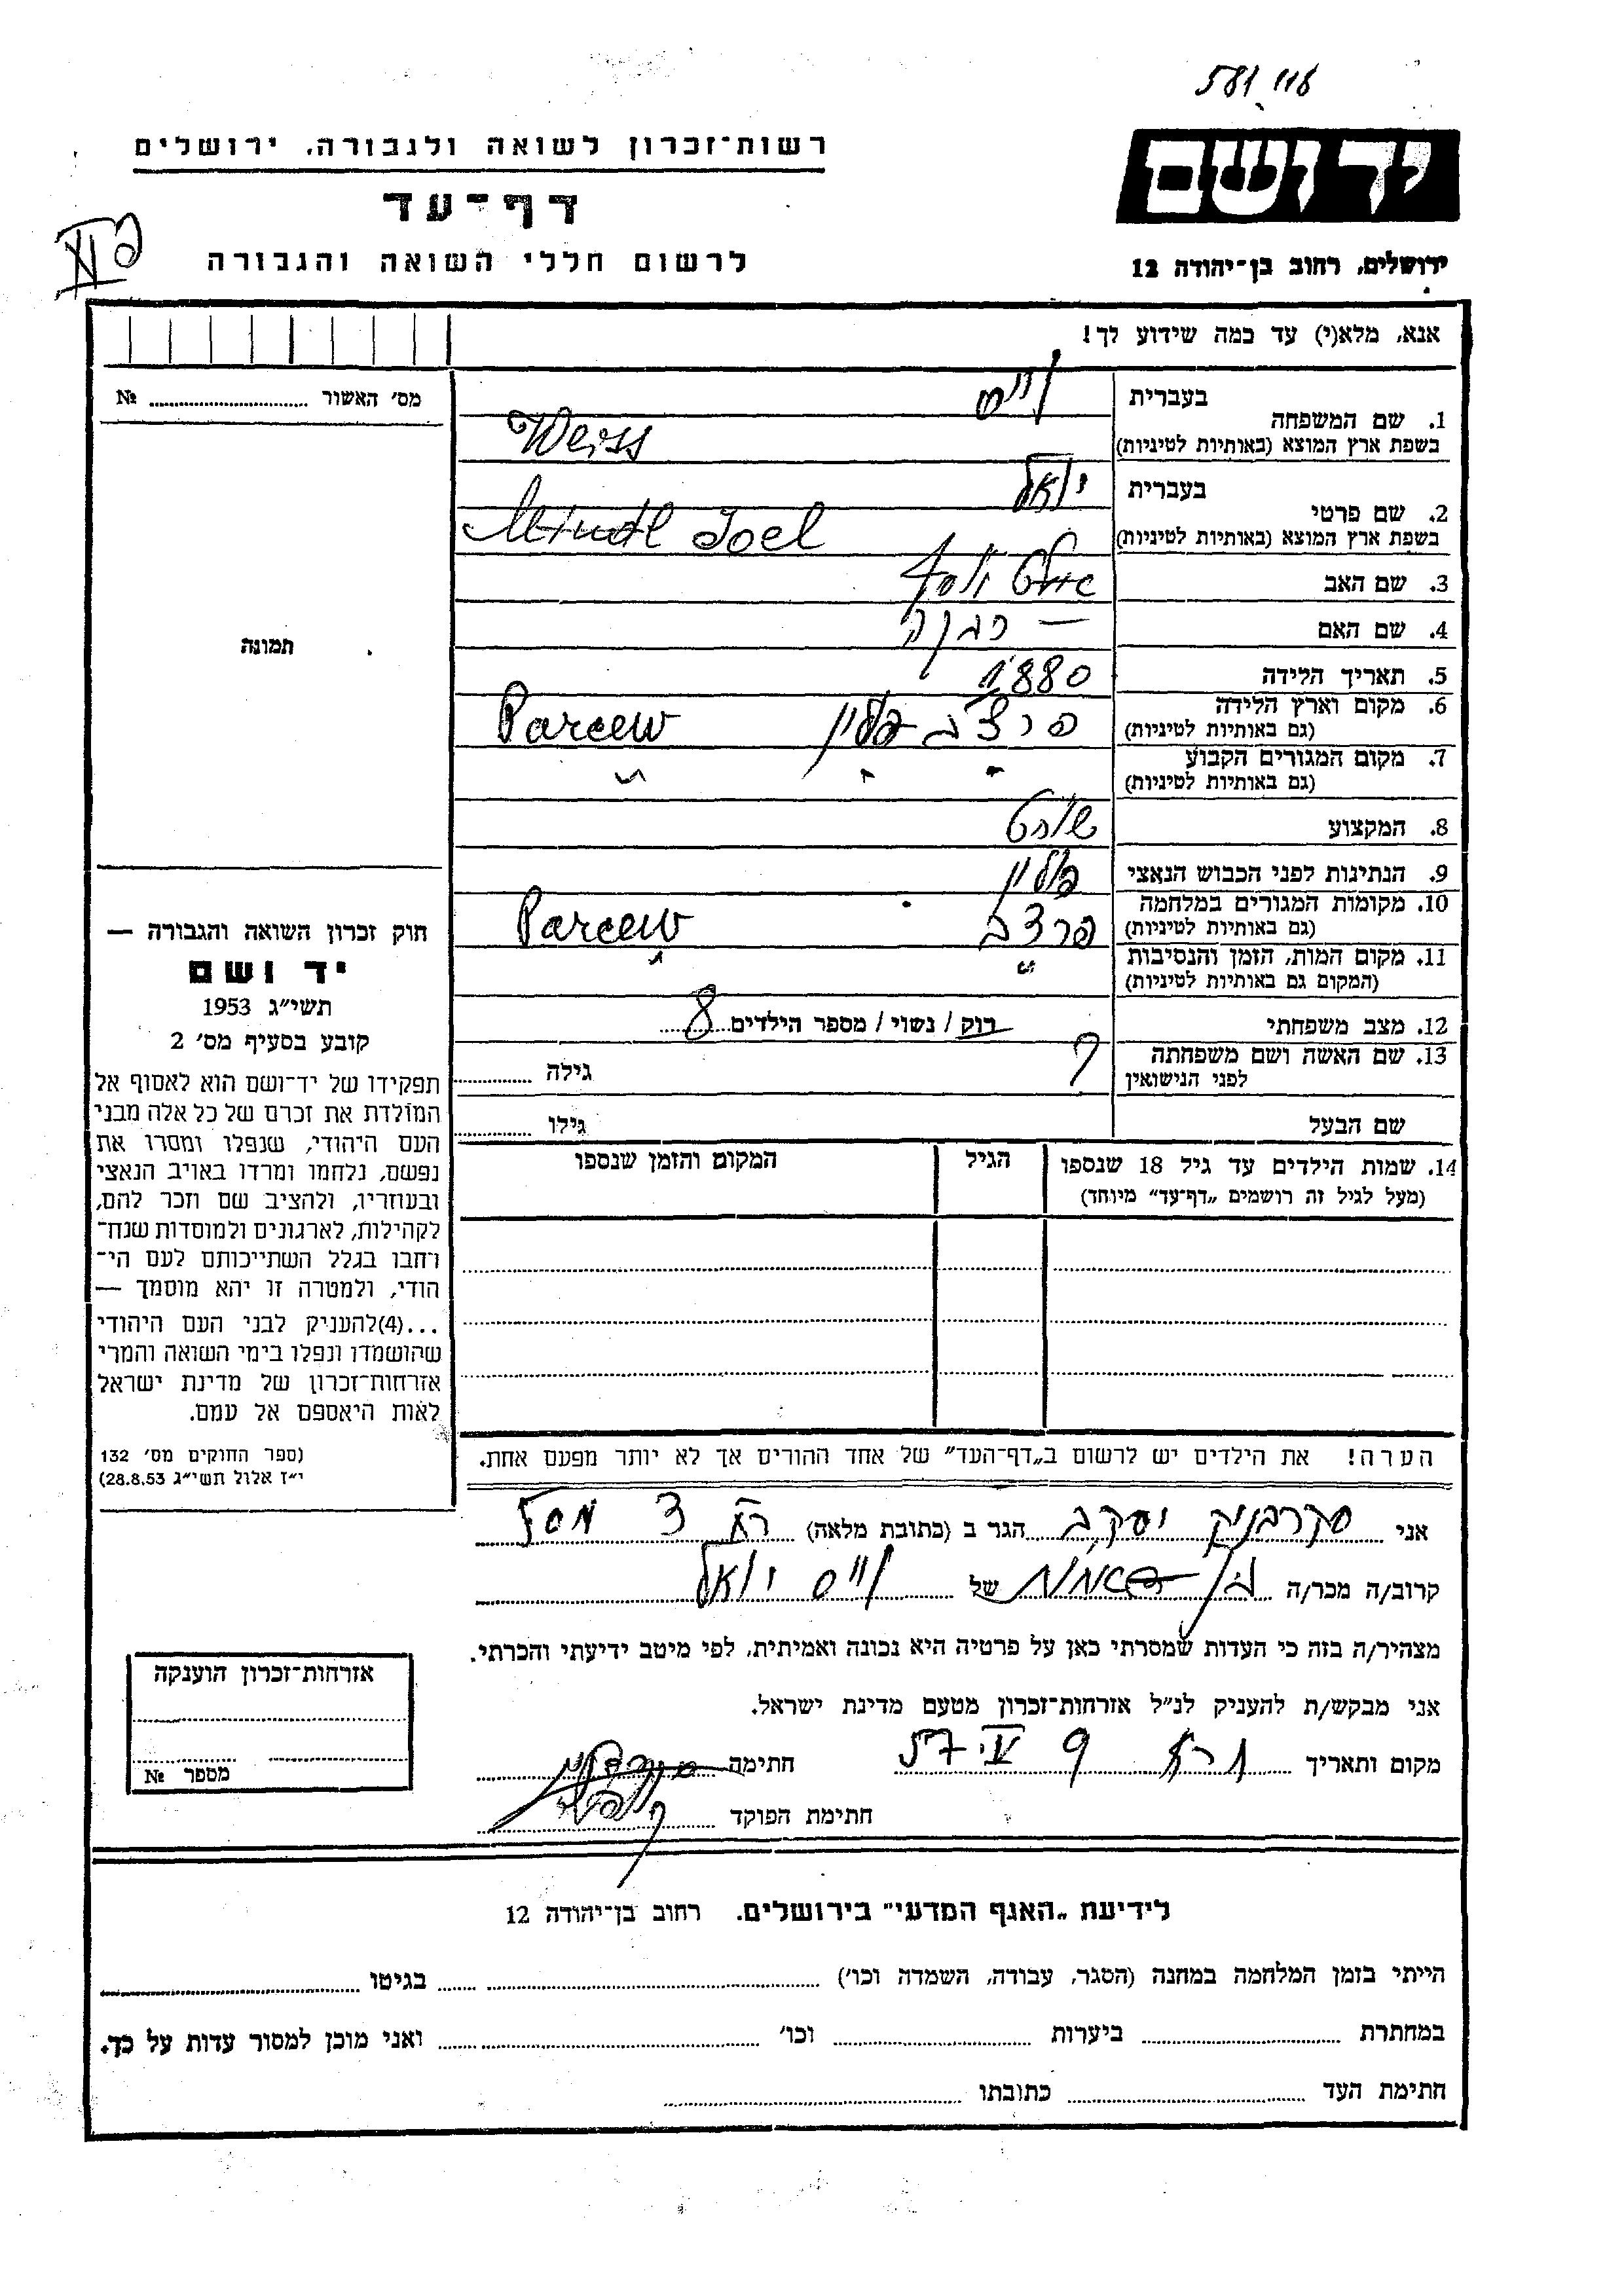 581 118
יד ושם
רשות־זכרון לשואה ולגבורה, ירושלים
דף־עד
לרשום חללי השואה והגבורה
ירושלים, רחוב בן־יהודה 12
אנא, מלא(י) עד כמה שידוע לך!
מס׳ האשור № 
תמונה
1. שם המשפחה
בעברית וייס
בשפת ארץ המוצא (באותיות לטיניות) Weiss
2. שם פרטי
בעברית יואל
בשפת ארץ המוצא (באותיות לטיניות) Joel
3. שם האב
4. שם האם — רבקה
5. תאריך הלידה 1880
6. מקום וארץ הלידה
(גם באותיות לטיניות) פרצב פולין Parcew
7. מקום המגורים הקבוע
(גם באותיות לטיניות) " " "
8. המקצוע שוחט
9. הנתינות לפני הכבוש הנאצי פולין
10. מקומות המגורים במלחמה
(גם באותיות לטיניות) פרצב Parcew
11. מקום המות, הזמן והנסיבות
(המקום גם באותיות לטיניות) " "
12. מצב משפחתי רוק / נשוי / מספר הילדים 8
13. שם האשה ושם משפחתה
לפני הנישואין ? גילה
שם הבעל גילו
14. שמות הילדים עד גיל 18 שנספו
(מעל לגיל זה רושמים „דף־עד״ מיוחד)
הגיל
המקום והזמן שנספו
חוק זכרון השואה והגבורה —
יד ושם
תשי״ג 1953
קובע בסעיף מס׳ 2
תפקידו של יד־ושם הוא לאסוף אל
המולדת את זכרם של כל אלה מבני
העם היהודי, שנפלו ומסרו את
נפשם, נלחמו ומרדו באויב הנאצי
ובעוזריו, ולהציב שם וזכר להם,
לקהילות, לארגונים ולמוסדות שנח־
רחבו בגלל השתייכותם לעם הי־
הודי, ולמטרה זו יהא מוסמך —
...(4)להעניק לבני העם היהודי
שהושמדו ונפלו בימי השואה והמרי
אזרחות־זכרון של מדינת ישראל
לאות היאספם אל עמם.
(ספר החוקים מס׳ 132
י״ז אלול תשי״ג 28.8.53)
הערה! את הילדים יש לרשום ב„דף־העד״ של אחד ההורים אך לא יותר מפעם אחת.
אני יעקב הגר ב (כתובת מלאה)
קרוב/ה מכר/ה בן של וייס יואל
מצהיר/ה בזה כי העדות שמסרתי כאן על פרטיה היא נכונה ואמיתית, לפי מיטב ידיעתי והכרתי.
אני מבקש/ת להעניק לנ״ל אזרחות־זכרון מטעם מדינת ישראל.
מקום ותאריך 9 VI 57 חתימה
חתימת הפוקד
אזרחות־זכרון הוענקה
מספר №
לידיעת „האגף המדעי״ בירושלים. רחוב בן־יהודה 12
הייתי בזמן המלחמה במחנה (הסגר, עבודה, השמדה וכו׳) בגיטו
במחתרת ביערות וכו׳ ואני מוכן למסור עדות על כך.
חתימת העד כתובתו